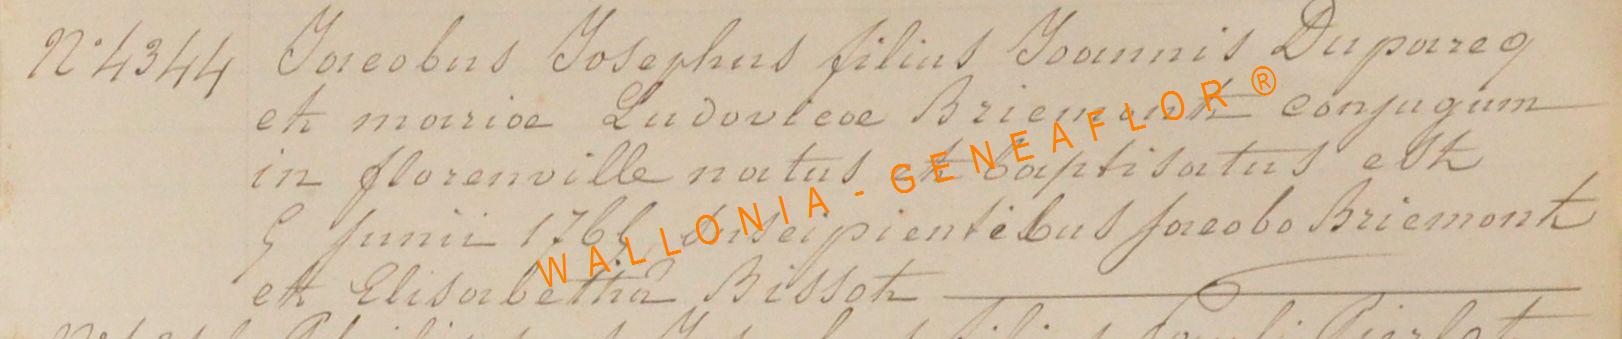 N° 4344 Jacobus Josephus filius Joannis Duparcq
et mariae Ludovicae Briemont conjugum
in florenville natus et baptisatus est
5 junii 1765, suscipientibus jacobo Briemont
et Elisabetha Bissot
WALLONIA - GENEAFLOR ®